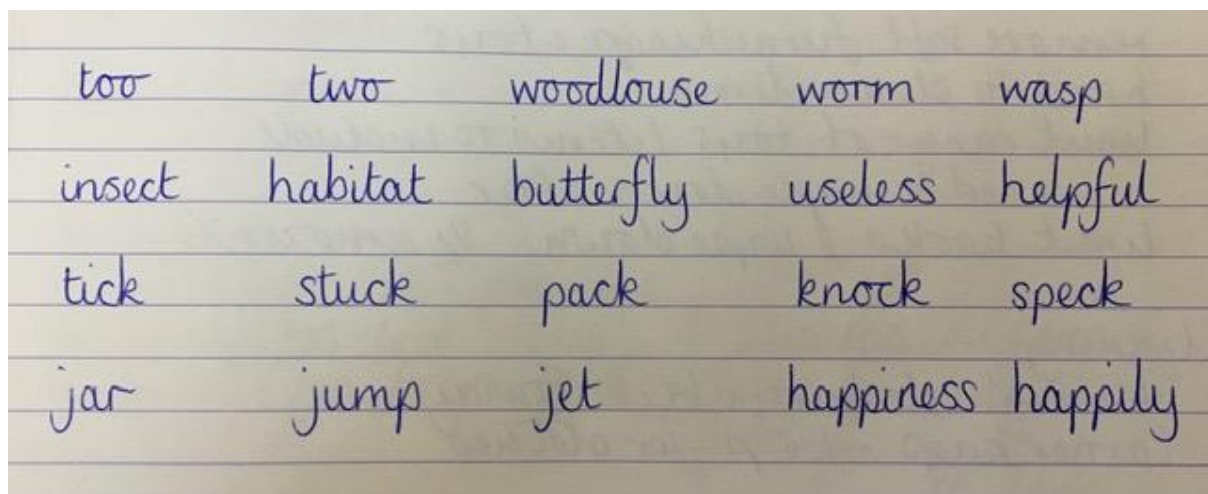 too two woodlouse worm wasp
insect habitat butterfly useless helpful
tick stuck pack knock speck
jar jump jet happiness happily